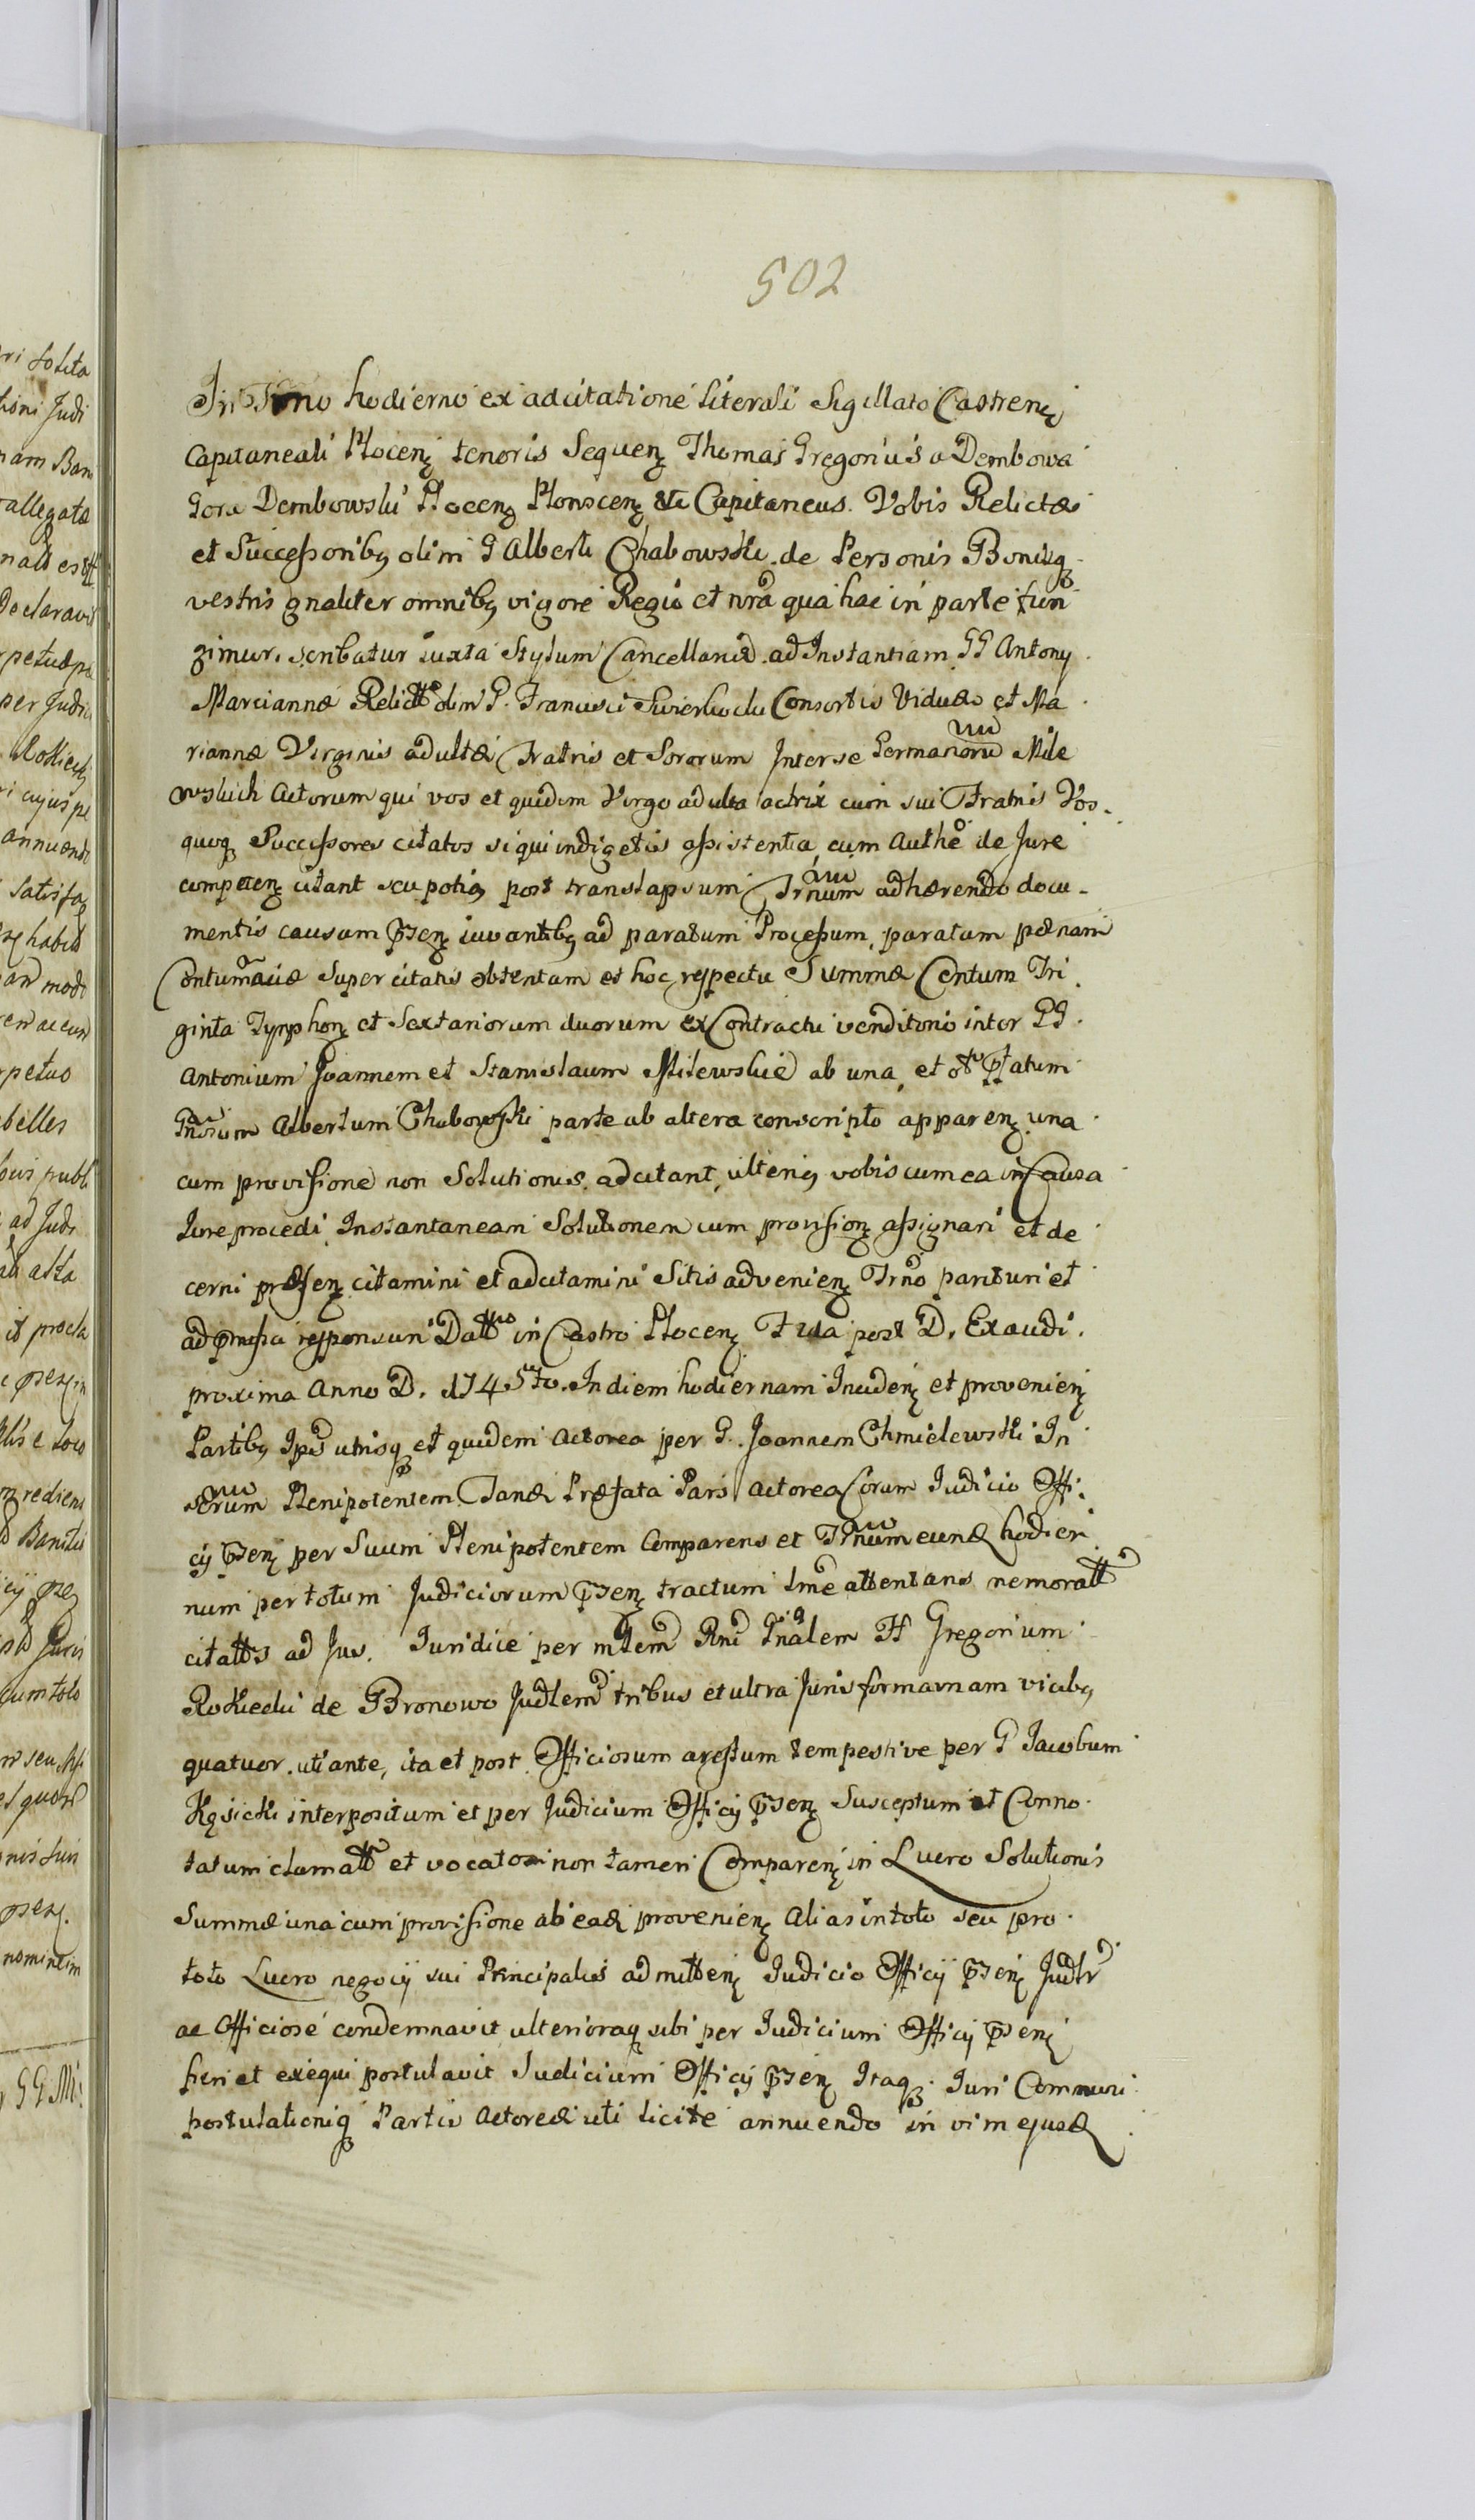 502
In Trno hodierno ex adcitatione literali Sigillato Castrenẽ
Capitaneali Plocenẽ tenoris Sequenẽ Thomas Gregorius a Dembowa
Gora Dembowski Plocenẽ Plonscenẽ &c Capitaneus. Vobis Relictæ
et Successoribq olim G Alberti Chabowski de Personis Bonisq
vestris gnaliter omnibq vigore Regia et nra qua hac in parte fun
gimur, scribatur iuxta Stylum Cancellariæ ad Instantiam GG Antony
Mariannæ Relictæ olim G. Francisci Swierkocki Consortis Viduæ et Ma
riannæ Virginis adultæ Fratris et Sororum Inter se Germanoru Mile
wskich Actorum qui vos et quidem Virgo adulta actrix cum sui Fratris Vos
quoq Successores citatos si qui indigetis assistentia, cum Authe de Jure
competenẽ citant seu potiq post translapsum Trnum adhærendo docu-
mentis causam pnsenẽ iuvantibq ad paratum Processum, paratam pænam
Contumaciæ super citatis obtentam et hoc respectu Summæ Centum Tri
ginta Tynphonẽ et Sextariorum duorum ex Contractu venditonis inter GG
Antonium Joannem et Stanislaum Milewskie ab una, et ptatum
Gnosum Albertum Chabowski parte ab altera conscripto apparenẽ una
cum provisione non Solutionis adcitant, ulteriq vobiscum ea in Causa
Iure procedi Instantaneam Solutionem cum provisionẽ assignari et de
cerni præsenẽ citamini et adcitamini Sitis advenienẽ Trno parituri et
ad præmissa responsuri Datt in Castro Plocenẽ F. IIda post D. Exaudi
proxima Anno D. 1745to. In diem hodiernam Incidenẽ et provenienẽ
Partibq Ipis utrisq et quidem Actorea per G. Joannem Chmielewski In
serum Plenipotentem Tandẽ Præfata Pars Actorea Coram Iudicio Offi
cij pnsenẽ per Suum Plenipotentem Comparens et Trnum eundẽ hodier
num per totum Judiciorum pnsenẽ tractum lme attentans nemoratt
citattos ad Jus. Iuridice per mtlem Rni Gnalem H Gregorium
Rokicki de Bronowo Judlem tribus et ultra Juris formam nam vicibq
quatuor, uti ante, ita et post Officiosum arestum tempestive per G Iacobum
Kęsicki interpositum et per Judicium Officij pnsenẽ Susceptum et Conno
tatum clamatt et vocatos non tamen Comparenẽ in Lucro Solutionis
Summæ una cum provisione ab eadẽ provenienẽ Alias in toto seu pro
toto Lucro negocij sui Principalis admittenẽ Iudicio Officij pnsenẽ Judlr
ac Officiose condemnavit ulterioraq sibi per Iudicium Officij pnsenẽ
fieri et exequi postulavit Iudicium Officij pnsenẽ Itaq Iuri Communi
postulationiq Partis Actoreæ uti licite annuendo in vim ejusdẽ